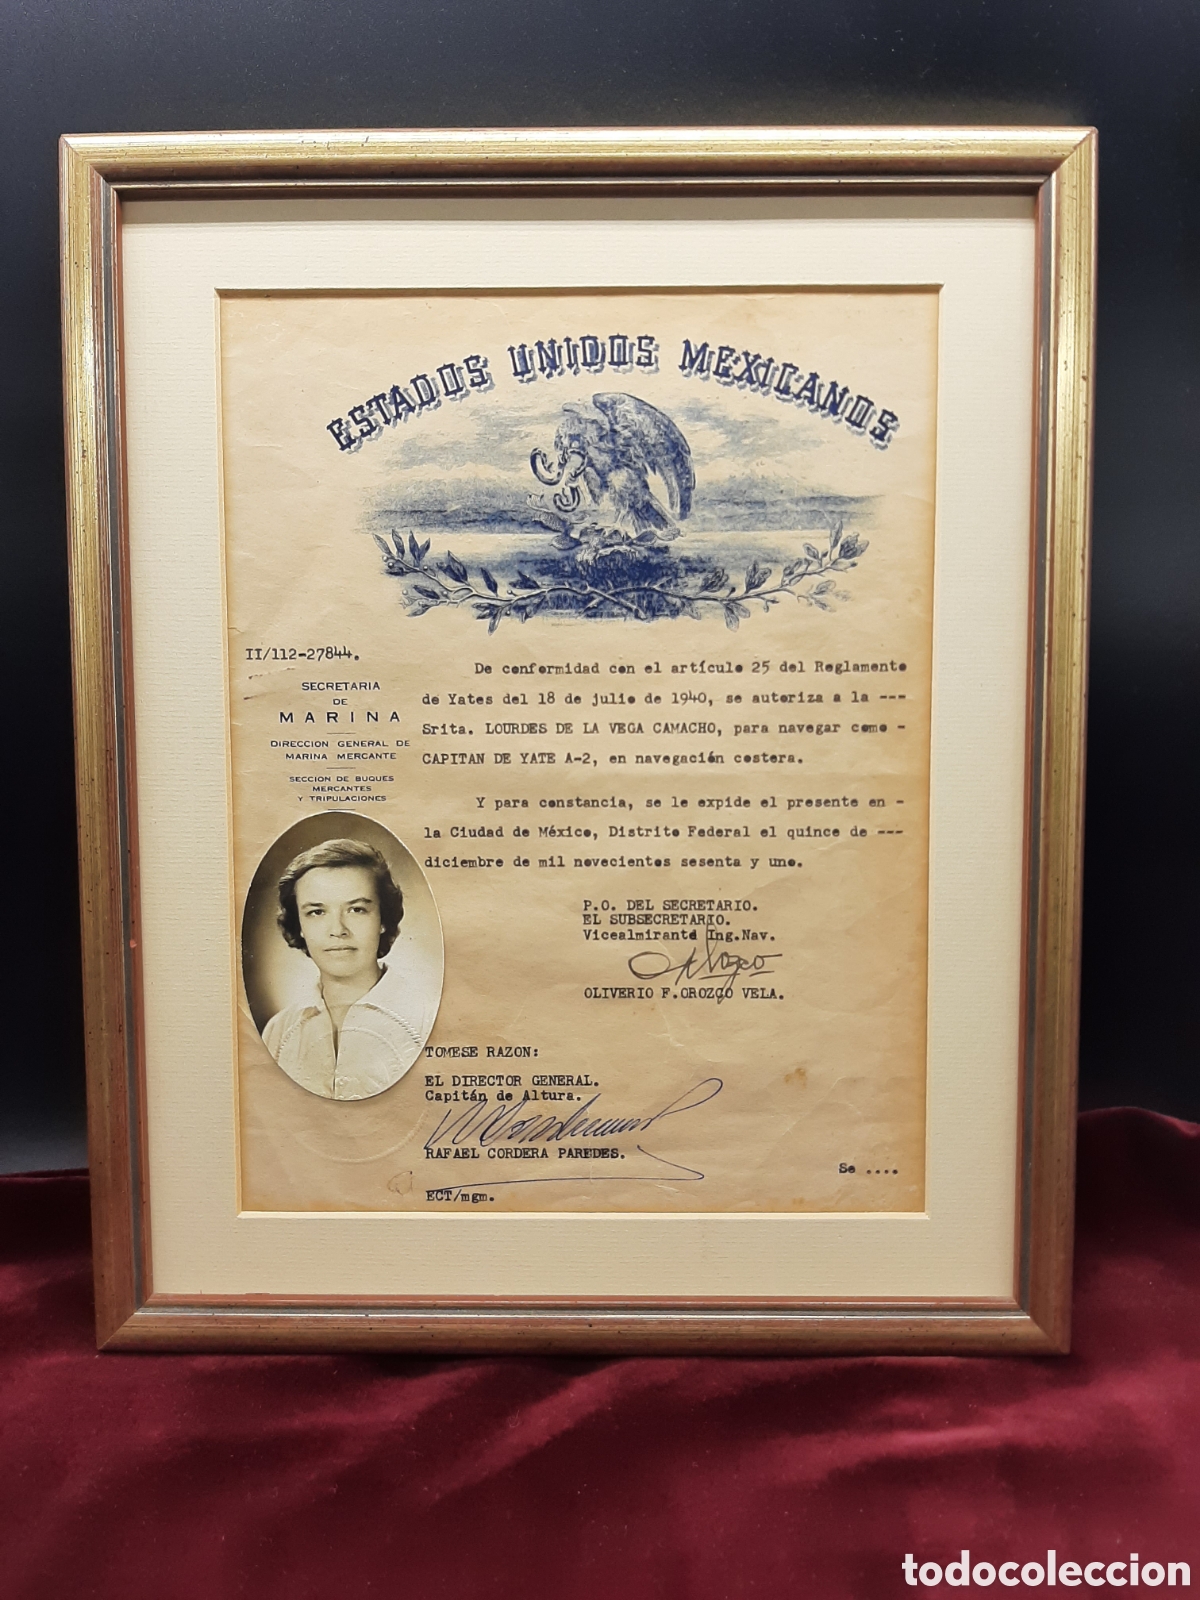 ESTADOS UNIDOS MEXICANOS
II/112-27844.
SECRETARIA
DE
MARINA
DIRECCION GENERAL DE
MARINA MERCANTE
SECCION DE BUQUES
MERCANTES
Y TRIPULACIONES
De conformidad con el artículo 25 del Reglamento
de Yates del 18 de julio de 1940, se autoriza a la ---
Srita. LOURDES DE LA VEGA CAMACHO, para navegar como -
CAPITAN DE YATE A-2, en navegación costera.
Y para constancia, se le expide el presente en -
la Ciudad de México, Distrito Federal el quince de ---
diciembre de mil novecientos sesenta y uno.
P.O. DEL SECRETARIO.
EL SUBSECRETARIO.
Vicealmirante Ing.Nav.
OLIVERIO F.OROZCO VELA.
TOMESE RAZON:
EL DIRECTOR GENERAL.
Capitán de Altura.
RAFAEL CORDERA PAREDES.
Se ....
ECT/mgm.
todocoleccion